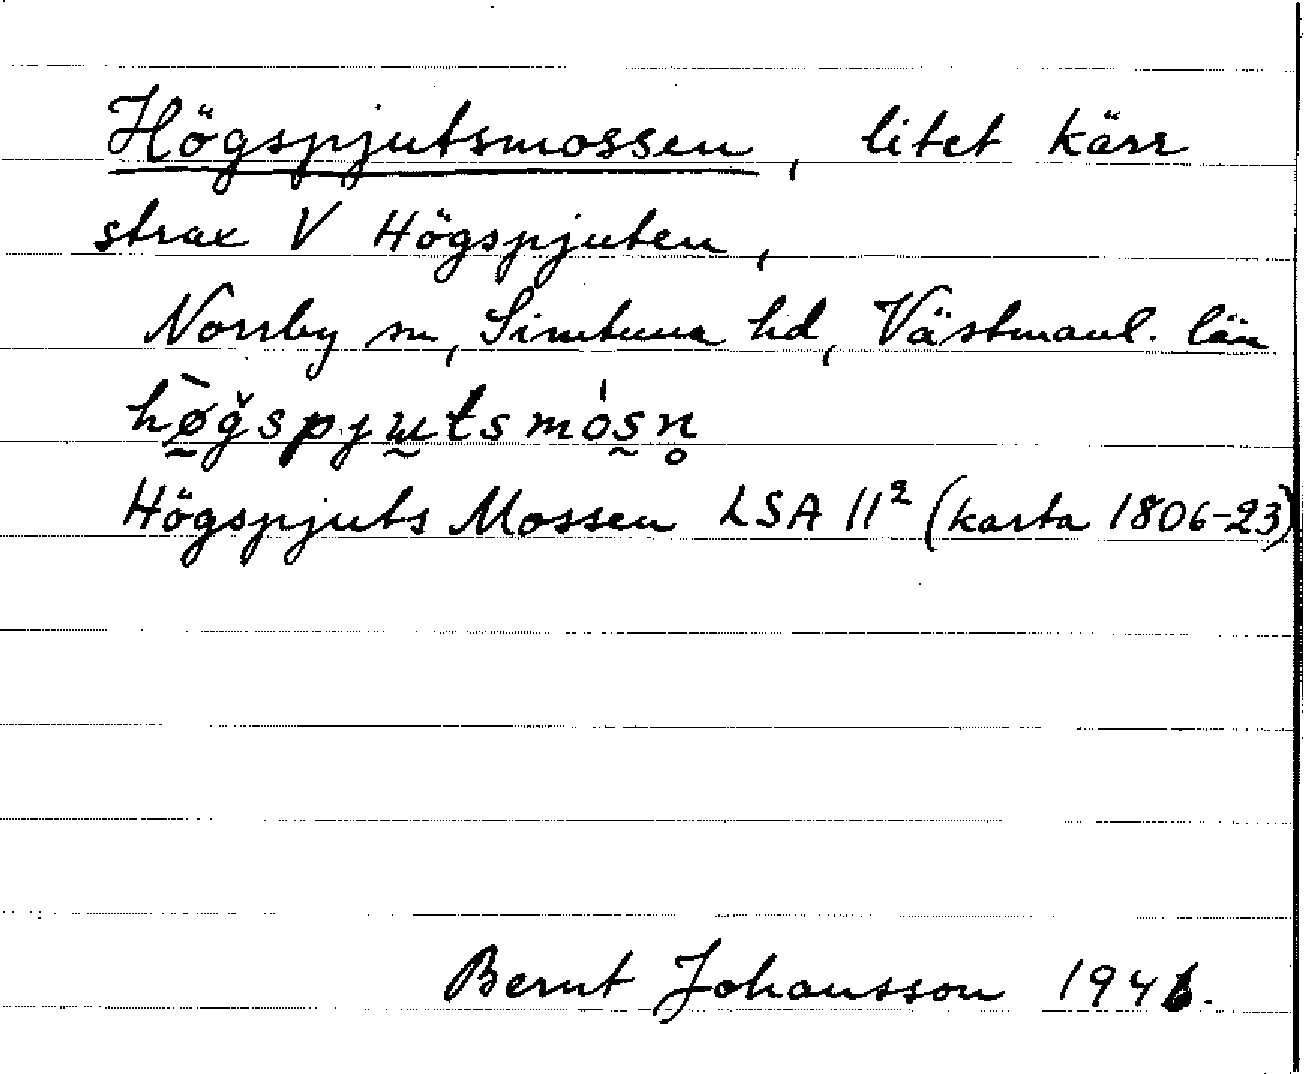 Högspjutsmossen, litet kärr
strax V Högspjuten,
Norrby sn, Simtuna hd, Västmanl. län
hø̠̄ǧspjʉ̰tsmós̰n̥
Högspjuts Mossen LSA 11² (karta 1806-23)
Bernt Johansson 1946.